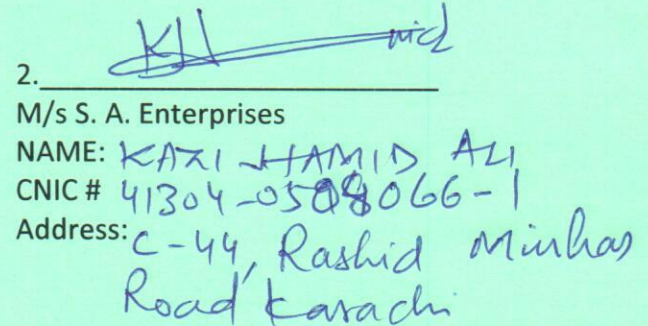 2.
M/s S. A. Enterprises
NAME: KAZI HAMID ALI
CNIC # 41304-0508066-1
Address: C-44, Rashid Minhas
Road Karachi